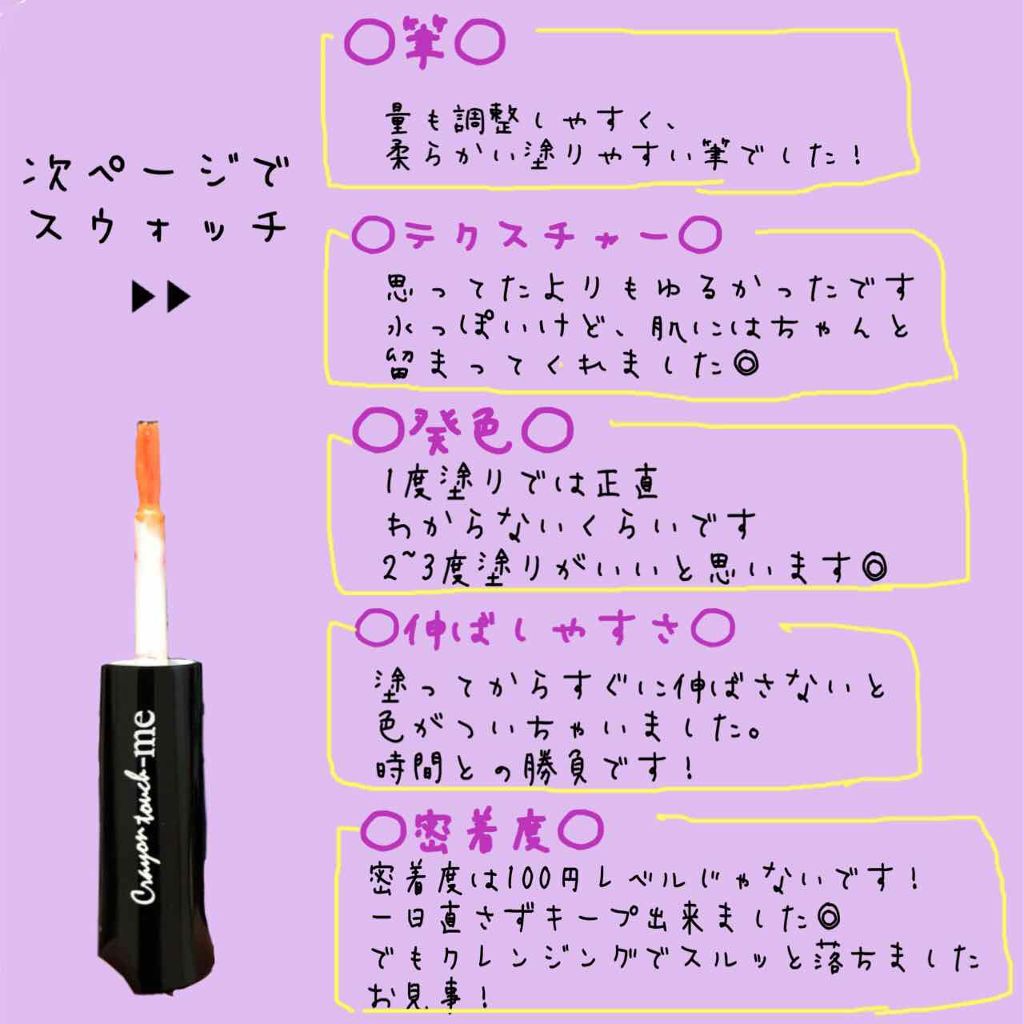 次ページで
スウォッチ
▶▶
○筆○
量も調整しやすく、
柔らかい塗りやすい筆でした！
○テクスチャー○
思ってたよりもゆるかったです
水っぽいけど、肌にはちゃんと
留まってくれました◎
○発色○
1度塗りでは正直
わからないくらいです
2~3度塗りがいいと思います◎
○伸ばしやすさ○
塗ってからすぐに伸ばさないと
色がついちゃいました。
時間との勝負です！
○密着度○
密着度は100円レベルじゃないです！
一日直さずキープ出来ました◎
でもクレンジングでスルッと落ちました
お見事！
Crayon touch-me